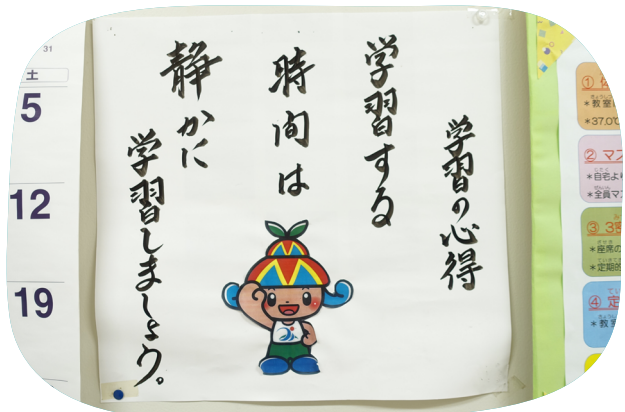 学習の心得
学習する
時間は
静かに
学習しましょう。
31
土
5
12
19
①
＊教室
＊37.0℃
② マス
＊自宅よ
＊全員マス
③ 3密
＊座席の
＊定期的
④ 定
＊教室